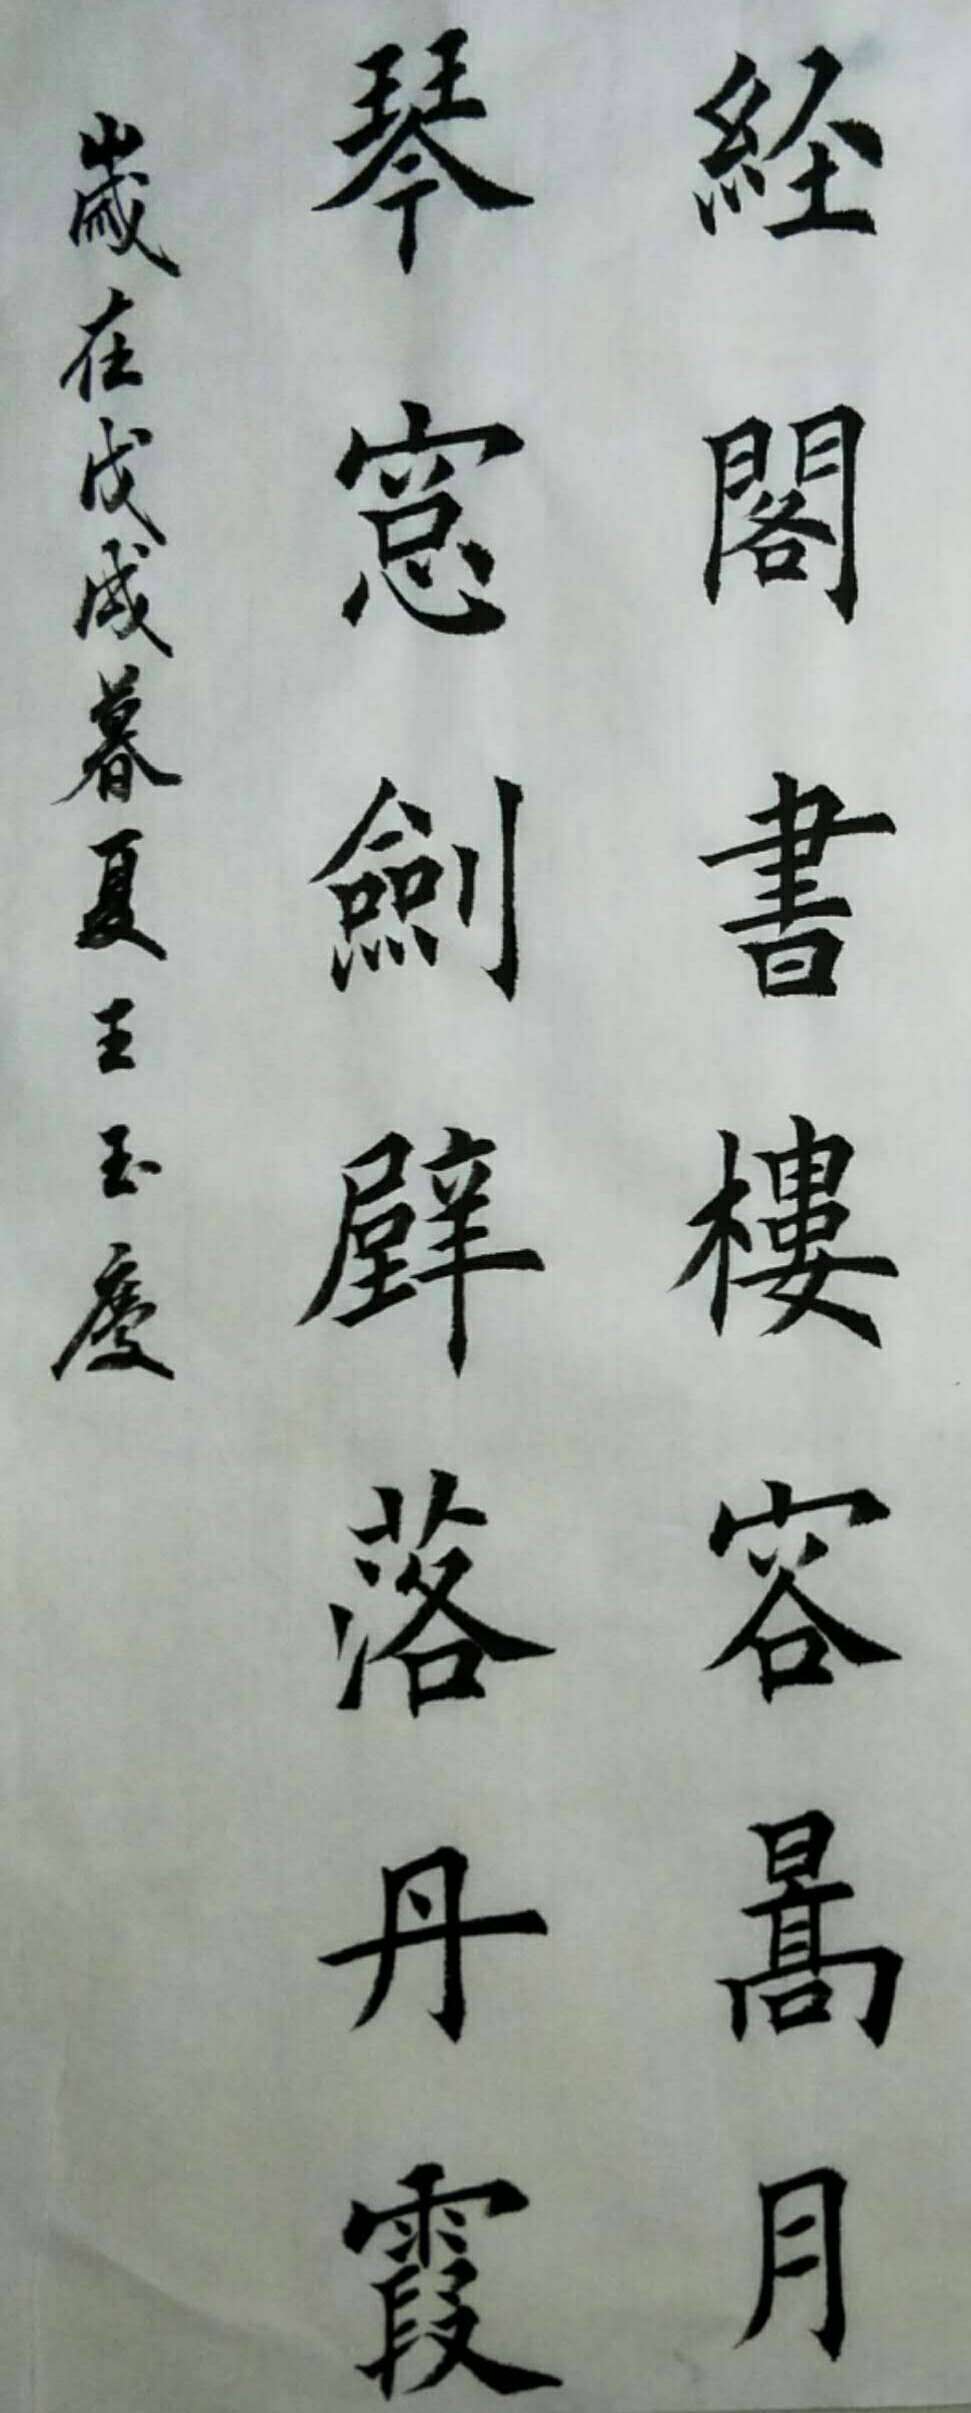 経閣書樓容暠月
琴窓劍壁落丹霞
歲在戊戌暮夏王玉慶